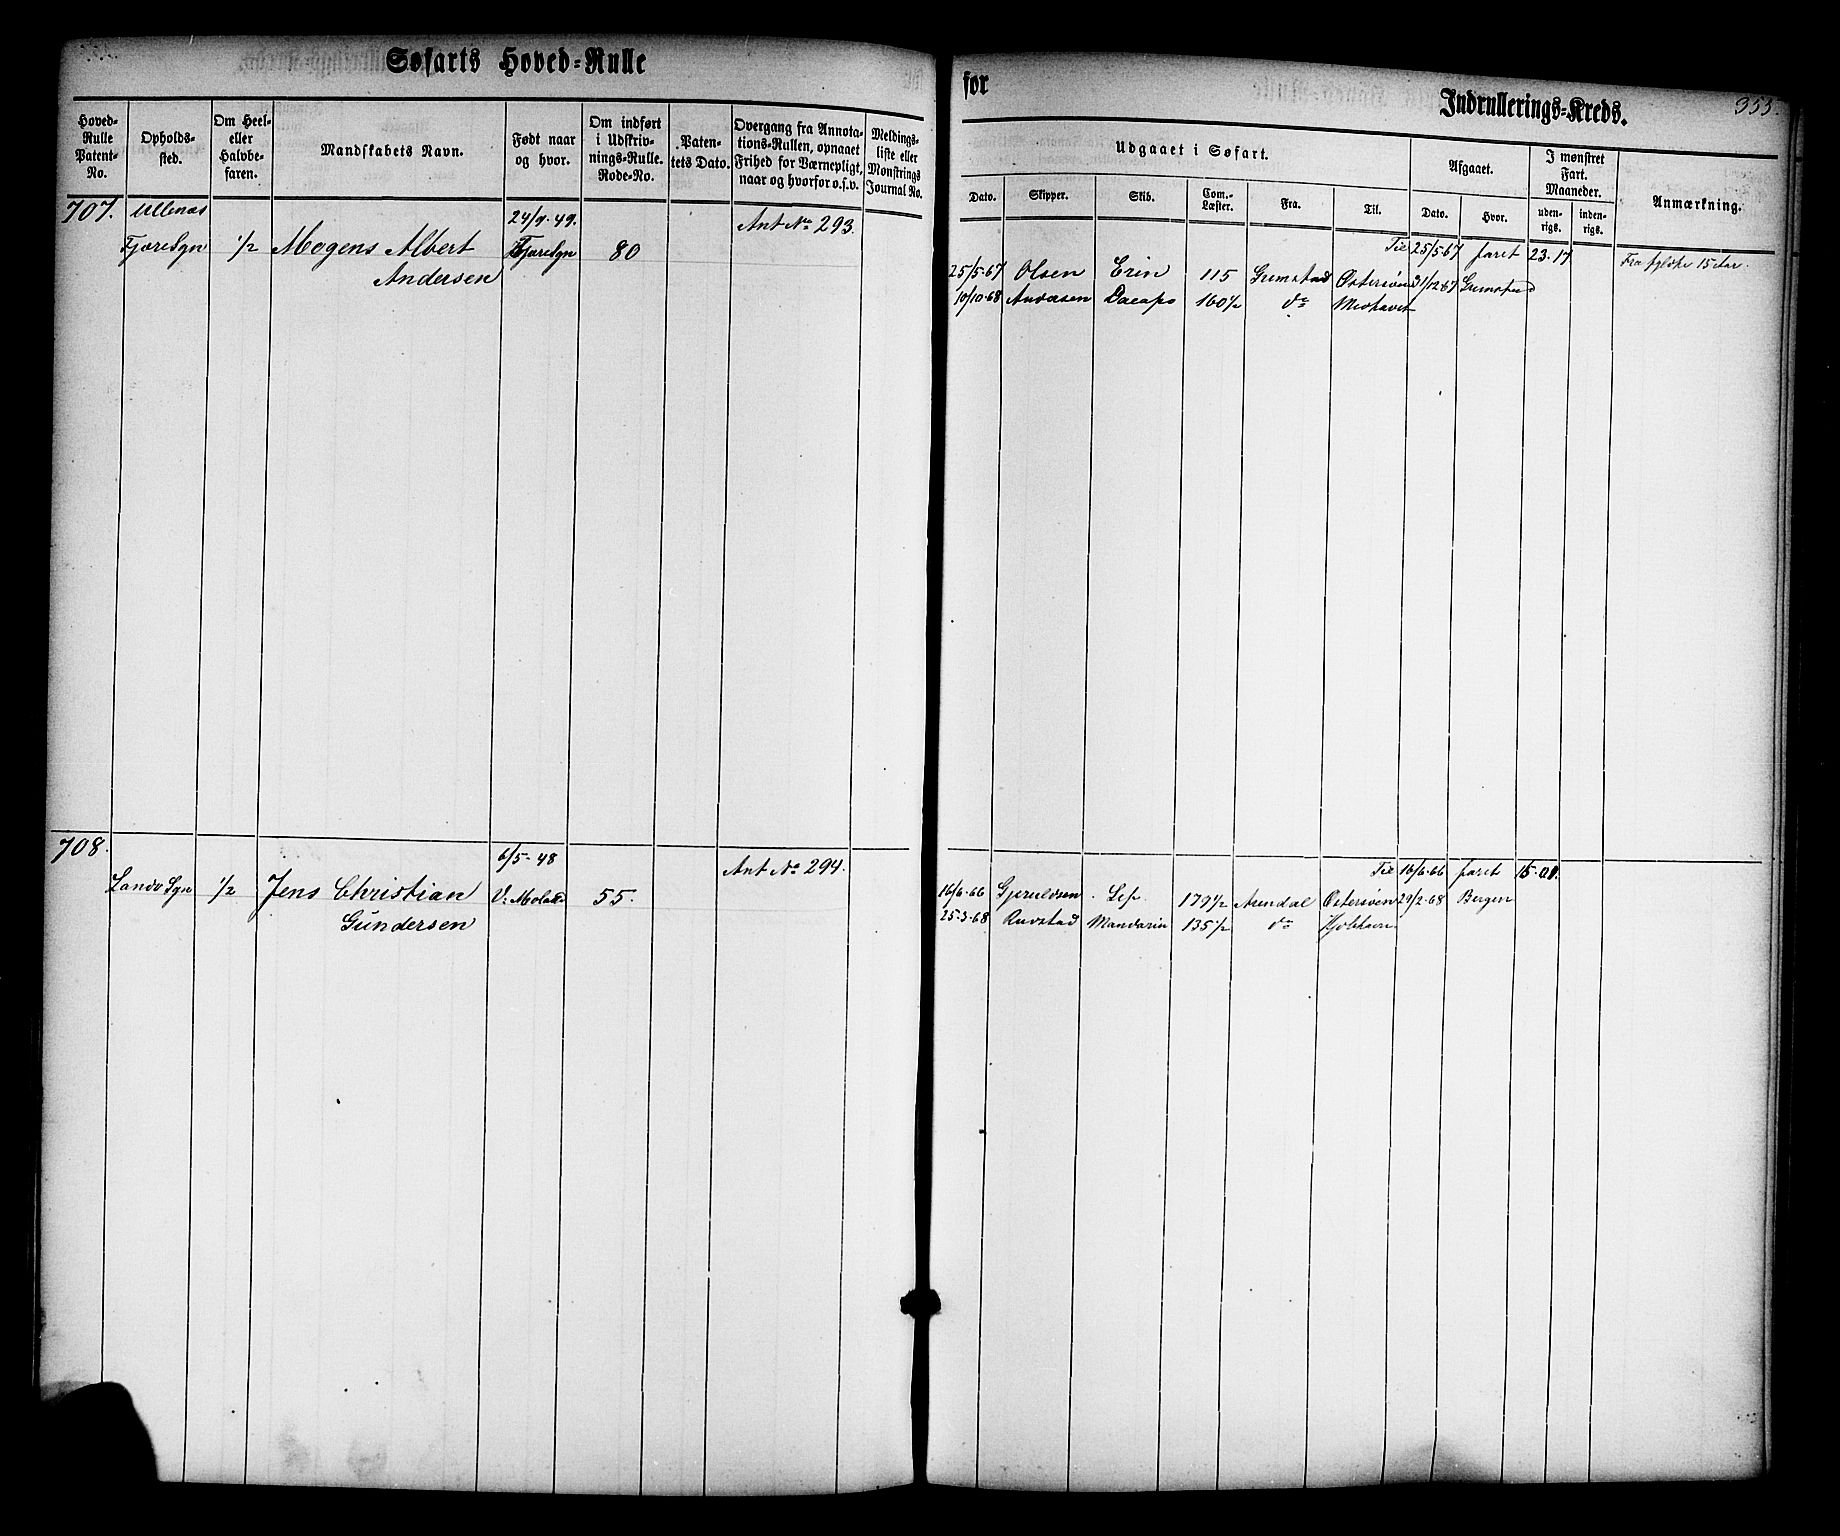 Søfarts Hoved=Rulle
for
Indrullerings=Kreds.
353.
Hoved=
Rulle
Patent=
No.
Opholds=
sted.
Om Heel=
eller
Halvbe=
faren.
Mandskabets Navn.
Født naar
og hvor.
Om indført
i Udskriv=
nings=Rulle.
Rode=No.
Paten=
tets Dato.
Overgang fra Annota=
tions=Rullen, opnaaet
Frihed for Værnepligt,
naar og hvorfor o.s.v.
Meldings=
liste eller
Mønstrings
Journal No.
Udgaaet i Søfart.
Dato.
Skipper.
Skib.
Com.=
Læster.
Fra.
Til.
Afgaaet.
Dato.
Hvor.
I mønstret
Fart.
Maaneder.
uden=
rigs.
inden=
rigs.
Anmærkning.
707.
Ullenæs
Fjæresgn
1/2
Mogens Albert
Andersen
24/9.49.
Fjæresgn
80
Ant No 293.
Til 25/5 67 faret 23.17
25/5.67 Olsen Erin 115 Grimstad Østersøen 31/12.67 Grimstad
10/10.68 Dacapo 160 1/2 do Midhavet
708.
Landv Sgn
1/2
Jens Christian
Gundersen
6/5-48
V: Moland
55.
Ant No 294.
Til 16/6.66 faret 15.01.
16/6.66 Gjeruldsen 179 1/2 Arendal Østersøen 29/2.68 Bergen
25.3.68 Mandarin 135 1/2 do Kjøbhavn